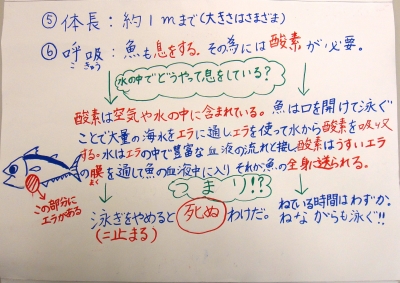 ⑤ 体長：約1mまで(大きさはさまざま)
⑥ 呼吸：魚も息をする。その為には酸素が必要。
こきゅう
水の中でどうやって息をしている？
酸素は空気や水の中に含まれている。魚は口を開けて泳ぐ
ことで大量の海水をエラに通しエラを使って水から酸素を吸い取
する。水はエラの中で豊富な血液の流れと接し酸素はうすいエラ
の膜を通して魚の血液中に入りそれから魚の全身に送られる。
まく
つまり!?
この部分に
エラがある
泳ぎをやめると死ぬわけだ。
(=止まる)
ねている時間はわずか。
ねながらも泳ぐ!!